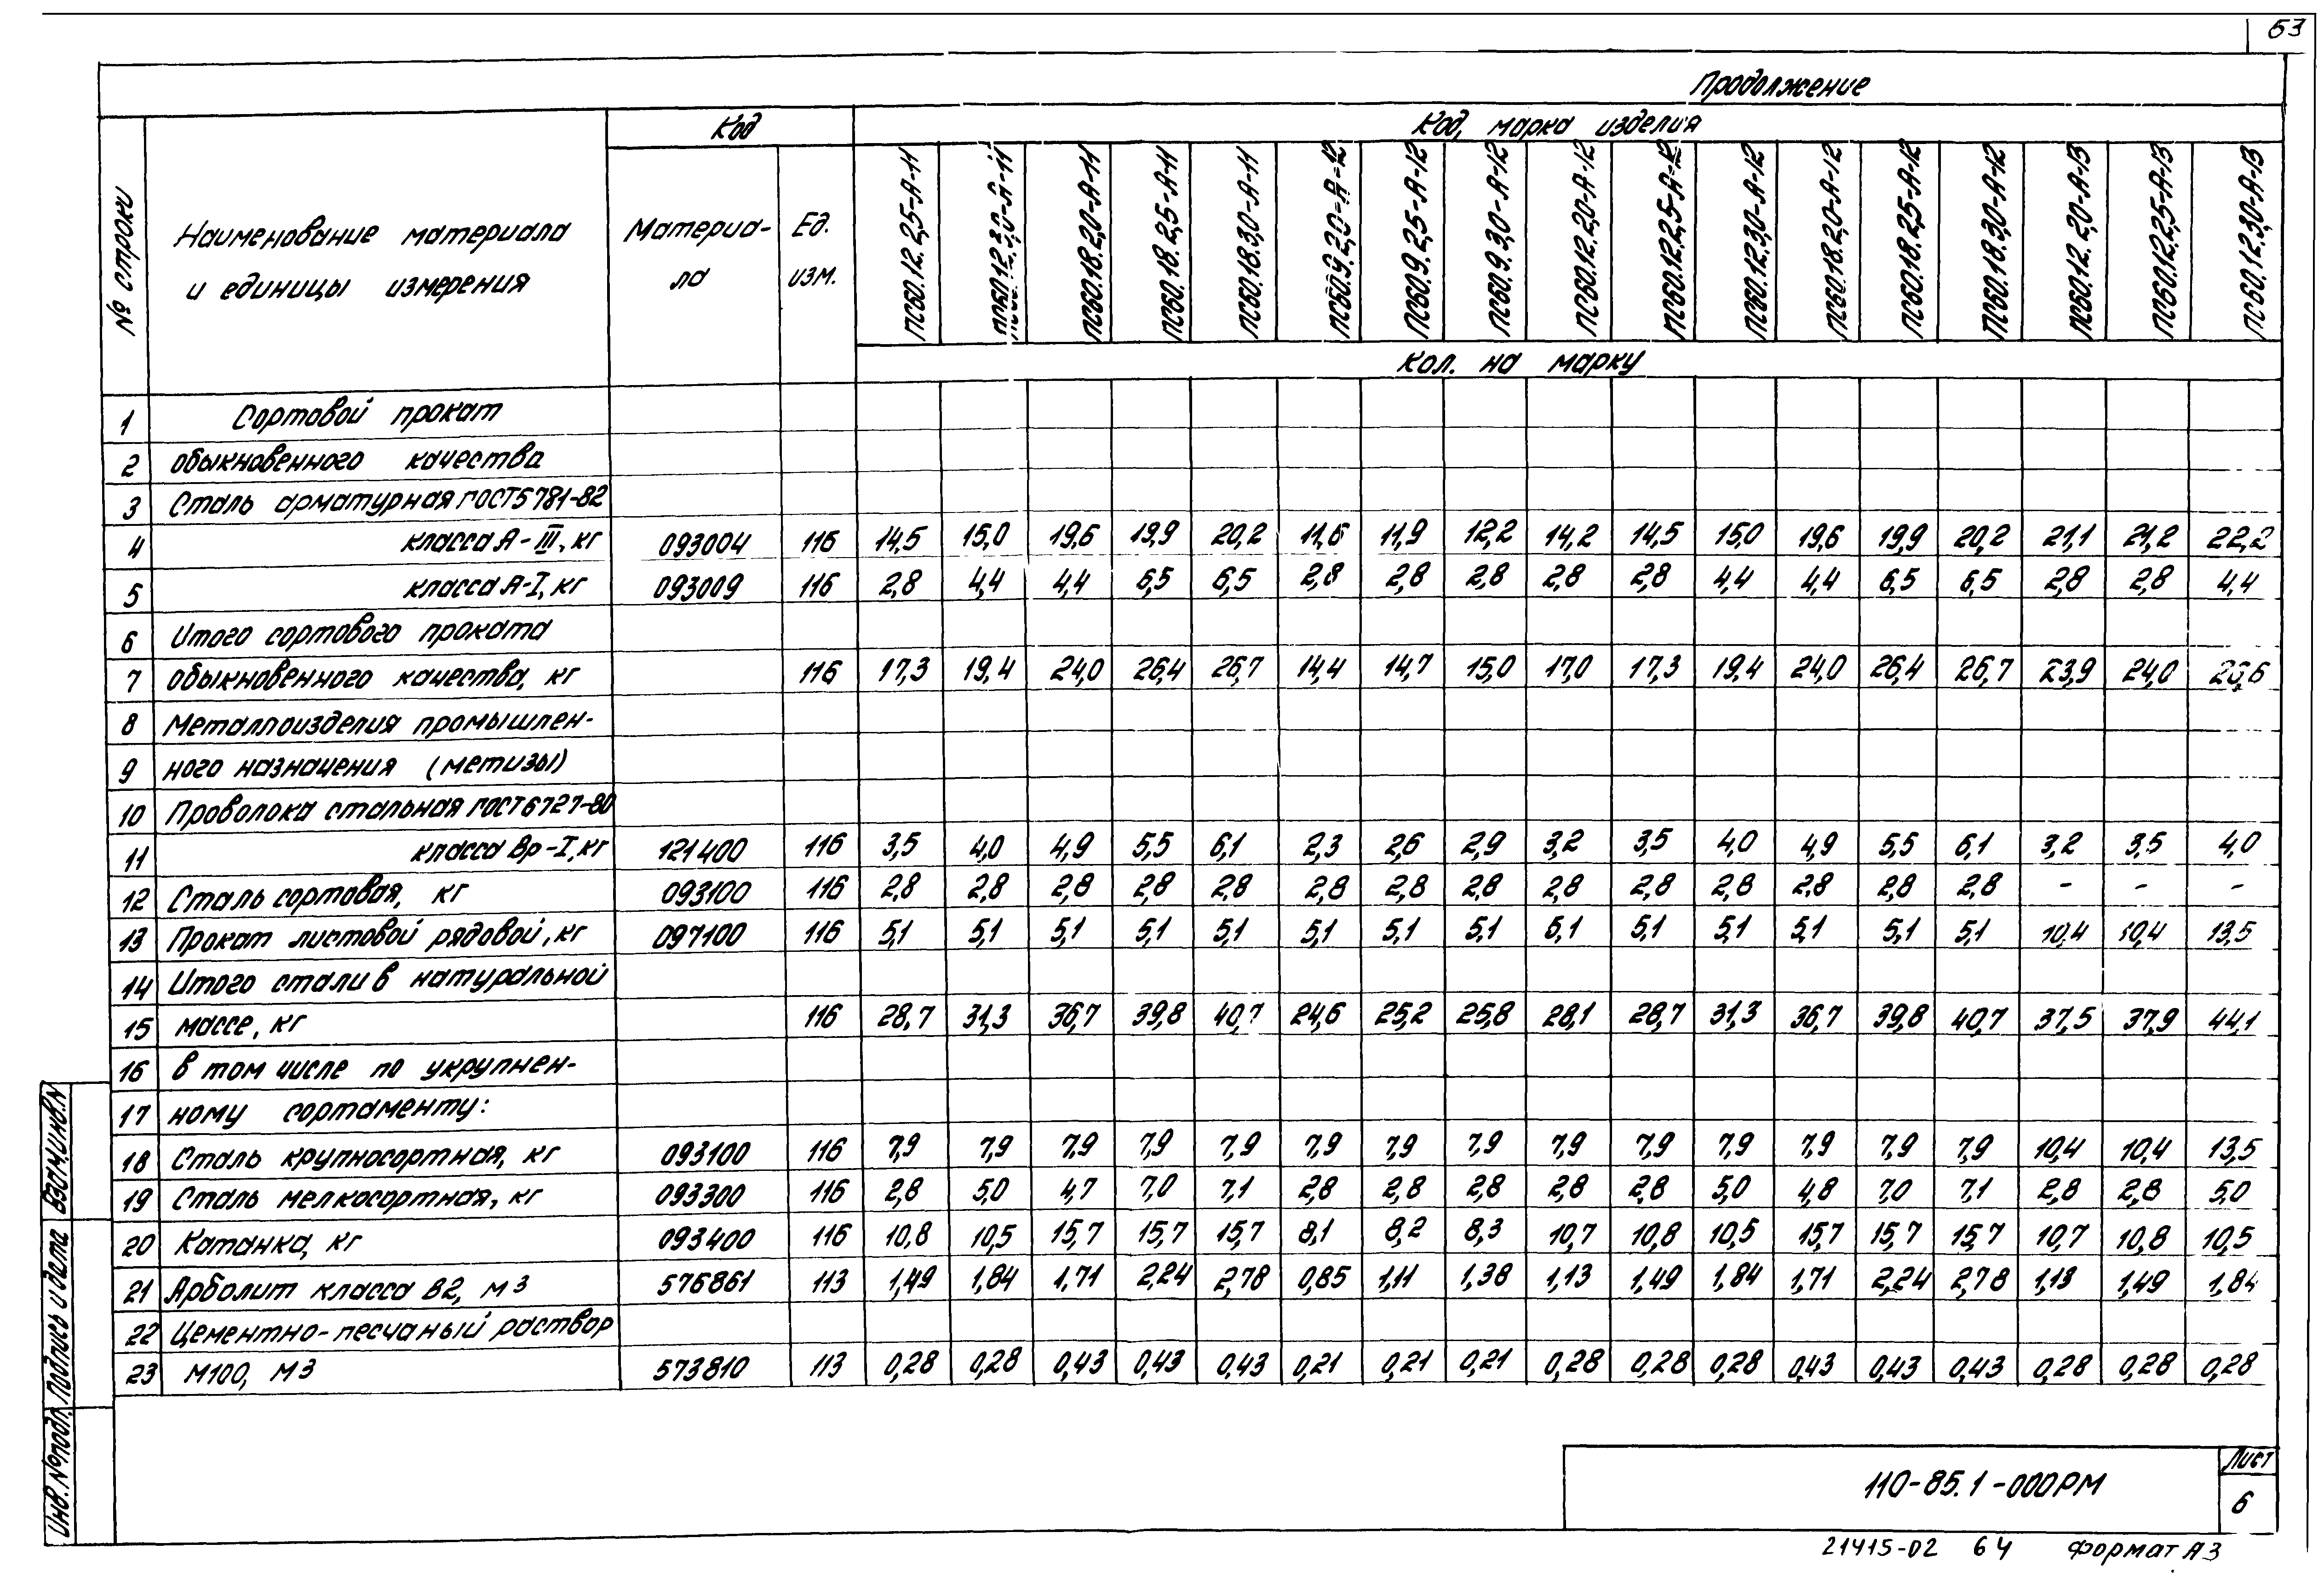 63
Продолжение
№ строки
Наименование материала
и единицы измерения
Код
Материа-
ла
Ед.
изм.
Код, марка изделия
ПС60.12.2,5-А-11
ПС60.12.3,0-А-11
ПС60.18.2,0-А-11
ПС60.18.2,5-А-11
ПС60.18.3,0-А-11
ПС60.9.2,0-А-12
ПС60.9.2,5-А-12
ПС60.9.3,0-А-12
ПС60.12.2,0-А-12
ПС60.12.2,5-А-12
ПС60.12.3,0-А-12
ПС60.18.2,0-А-12
ПС60.18.2,5-А-12
ПС60.18.3,0-А-12
ПС60.12.2,0-А-13
ПС60.12.2,5-А-13
ПС60.12.3,0-А-13
Кол. на марку
1 Сортовой прокат
2 обыкновенного качества
3 Сталь арматурная ГОСТ5781-82
4 класса А-III, кг 093004 116 14,5 15,0 19,6 19,9 20,2 11,6 11,9 12,2 14,2 14,5 15,0 19,6 19,9 20,2 21,1 21,2 22,2
5 класса А-I, кг 093009 116 2,8 4,4 4,4 6,5 6,5 2,8 2,8 2,8 2,8 2,8 4,4 4,4 6,5 6,5 2,8 2,8 4,4
6 Итого сортового проката
7 обыкновенного качества, кг 116 17,3 19,4 24,0 26,4 26,7 14,4 14,7 15,0 17,0 17,3 19,4 24,0 26,4 26,7 23,9 24,0 26,6
8 Металлоизделия промышлен-
9 ного назначения (метизы)
10 Проволока стальная ГОСТ6727-80
11 класса Вр-I, кг 121400 116 3,5 4,0 4,9 5,5 6,1 2,3 2,6 2,9 3,2 3,5 4,0 4,9 5,5 6,1 3,2 3,5 4,0
12 Сталь сортовая, кг 093100 116 2,8 2,8 2,8 2,8 2,8 2,8 2,8 2,8 2,8 2,8 2,8 2,8 2,8 2,8 - - -
13 Прокат листовой рядовой, кг 097100 116 5,1 5,1 5,1 5,1 5,1 5,1 5,1 5,1 5,1 5,1 5,1 5,1 5,1 5,1 10,4 10,4 13,5
14 Итого стали в натуральной
15 массе, кг 116 28,7 31,3 36,7 39,8 40,7 24,6 25,2 25,8 28,1 28,7 31,3 36,7 39,8 40,7 37,5 37,9 44,1
16 в том числе по укрупнен-
17 ному сортаменту:
18 Сталь крупносортная, кг 093100 116 7,9 7,9 7,9 7,9 7,9 7,9 7,9 7,9 7,9 7,9 7,9 7,9 7,9 7,9 10,4 10,4 13,5
19 Сталь мелкосортная, кг 093300 116 2,8 5,0 4,7 7,0 7,1 2,8 2,8 2,8 2,8 2,8 5,0 4,8 7,0 7,1 2,8 2,8 5,0
20 Катанка, кг 093400 116 10,8 10,5 15,7 15,7 15,7 8,1 8,2 8,3 10,7 10,8 10,5 15,7 15,7 15,7 10,7 10,8 10,5
21 Арболит класса В2, м3 576861 113 1,49 1,84 1,71 2,24 2,78 0,85 1,11 1,38 1,13 1,49 1,84 1,71 2,24 2,78 1,13 1,49 1,84
22 Цементно-песчаный раствор
23 М100, м3 573810 113 0,28 0,28 0,43 0,43 0,43 0,21 0,21 0,21 0,28 0,28 0,28 0,43 0,43 0,43 0,28 0,28 0,28
Инв. № подл. Подпись и дата Взам.инв.N
110-85.1-000РМ
Лист
6
21415-02 64 Формат А3